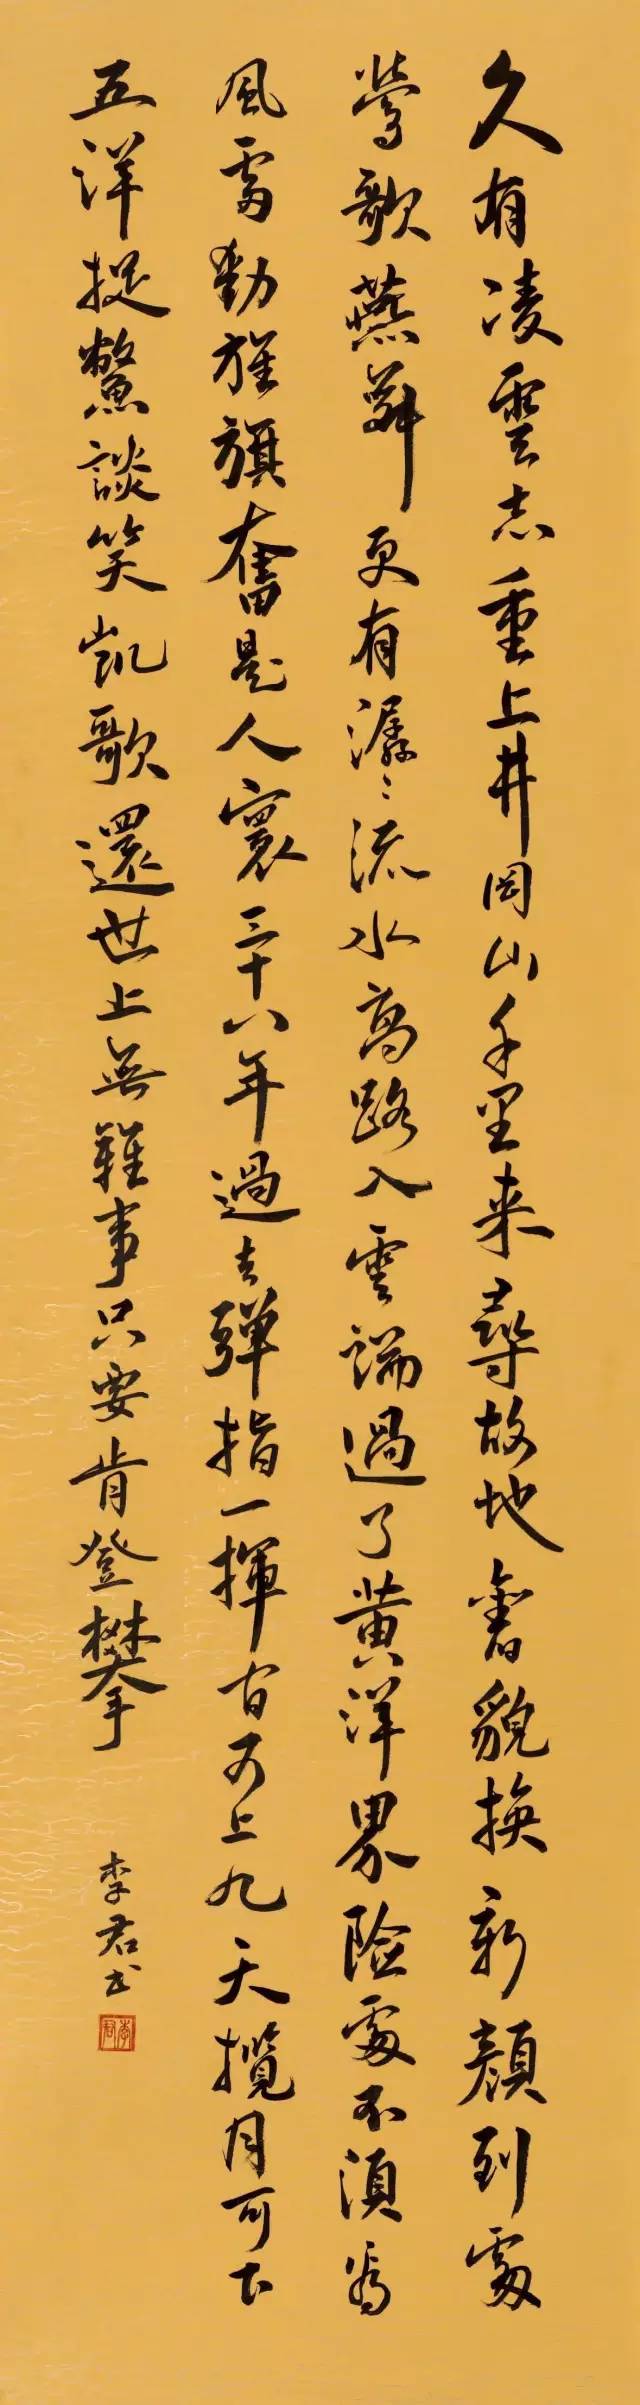 久有凌雲志重上井岡山千里来尋故地舊貌換新顏到處
鶯歌燕舞更有潺〻流水高路入雲端過了黄洋界险處不須看
風雷動旌旗奮是人寰三十八年過去弹指一揮間可上九天攬月可下
五洋捉鱉談笑凱歌還世上無難事只要肯登攀
李君书
李君